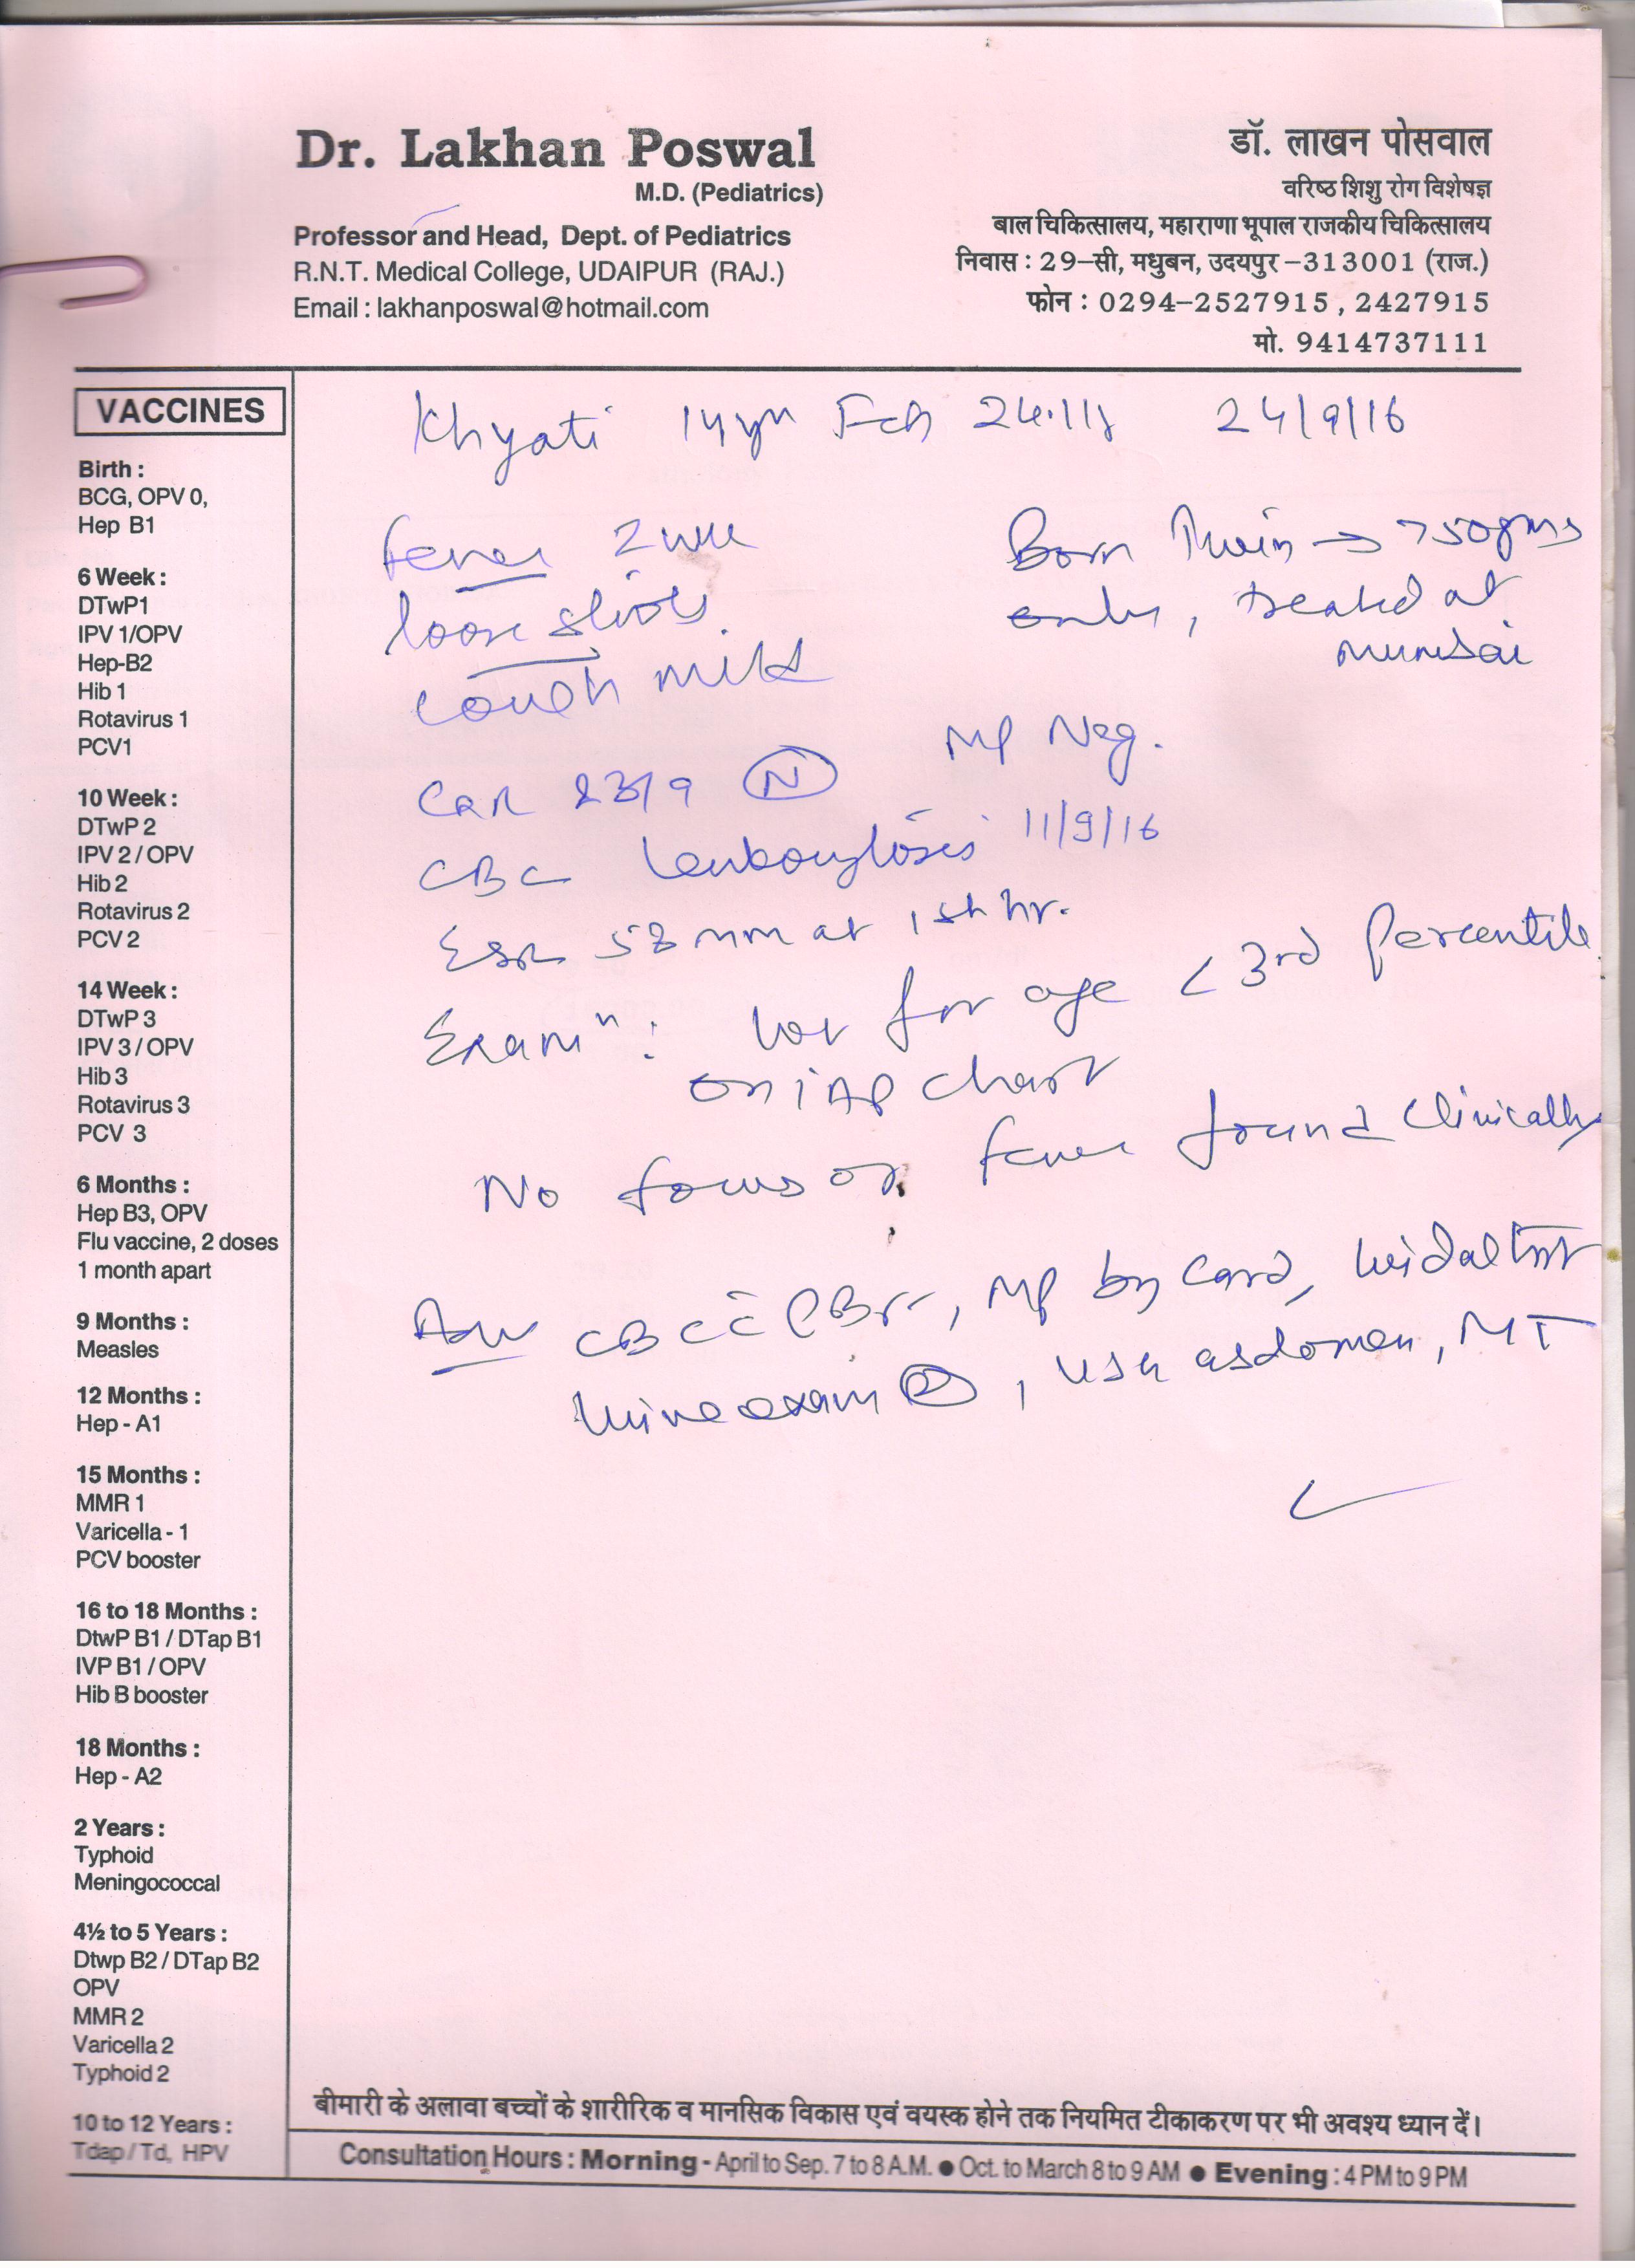 Dr. Lakhan Poswal
M.D. (Pediatrics)
Professor and Head, Dept. of Pediatrics
R.N.T. Medical College, UDAIPUR (RAJ.)
Email : lakhanposwal@hotmail.com
डॉ. लाखन पोसवाल
वरिष्ठ शिशु रोग विशेषज्ञ
बाल चिकित्सालय, महाराणा भूपाल राजकीय चिकित्सालय
निवास : 29-सी, मधुबन, उदयपुर-313001 (राज.)
फोन : 0294-2527915, 2427915
मो. 9414737111
VACCINES
Birth :
BCG, OPV 0,
Hep B1
6 Week :
DTwP1
IPV 1/OPV
Hep-B2
Hib 1
Rotavirus 1
PCV1
10 Week :
DTwP 2
IPV 2 / OPV
Hib 2
Rotavirus 2
PCV 2
14 Week :
DTwP 3
IPV 3 / OPV
Hib 3
Rotavirus 3
PCV 3
6 Months :
Hep B3, OPV
Flu vaccine, 2 doses
1 month apart
9 Months :
Measles
12 Months :
Hep - A1
15 Months :
MMR 1
Varicella - 1
PCV booster
16 to 18 Months :
DtwP B1 / DTap B1
IVP B1 / OPV
Hib B booster
18 Months :
Hep - A2
2 Years :
Typhoid
Meningococcal
4½ to 5 Years :
Dtwp B2 / DTap B2
OPV
MMR 2
Varicella 2
Typhoid 2
10 to 12 Years :
Tdap / Td, HPV
Khyati 14yr Fch 24/9/16
Fever 2
loose stools
cough mild
Born Twin → 750gms
only, treated at
Mumbai
MP Neg.
CXR 23/9 N
CBC Leukocytosis 11/9/16
ESR 58 mm at 1st hr.
Examⁿ : for age < 3rd Percentile
on IAP chart
No focus of fever found Clinically
Adv CBC c̄ PBF, MP by Card, Widal Test
Urine exam R, USG abdomen, MT
बीमारी के अलावा बच्चों के शारीरिक व मानसिक विकास एवं वयस्क होने तक नियमित टीकाकरण पर भी अवश्य ध्यान दें।
Consultation Hours : Morning - April to Sep. 7 to 8 A.M. ● Oct. to March 8 to 9 AM ● Evening : 4 PM to 9 PM